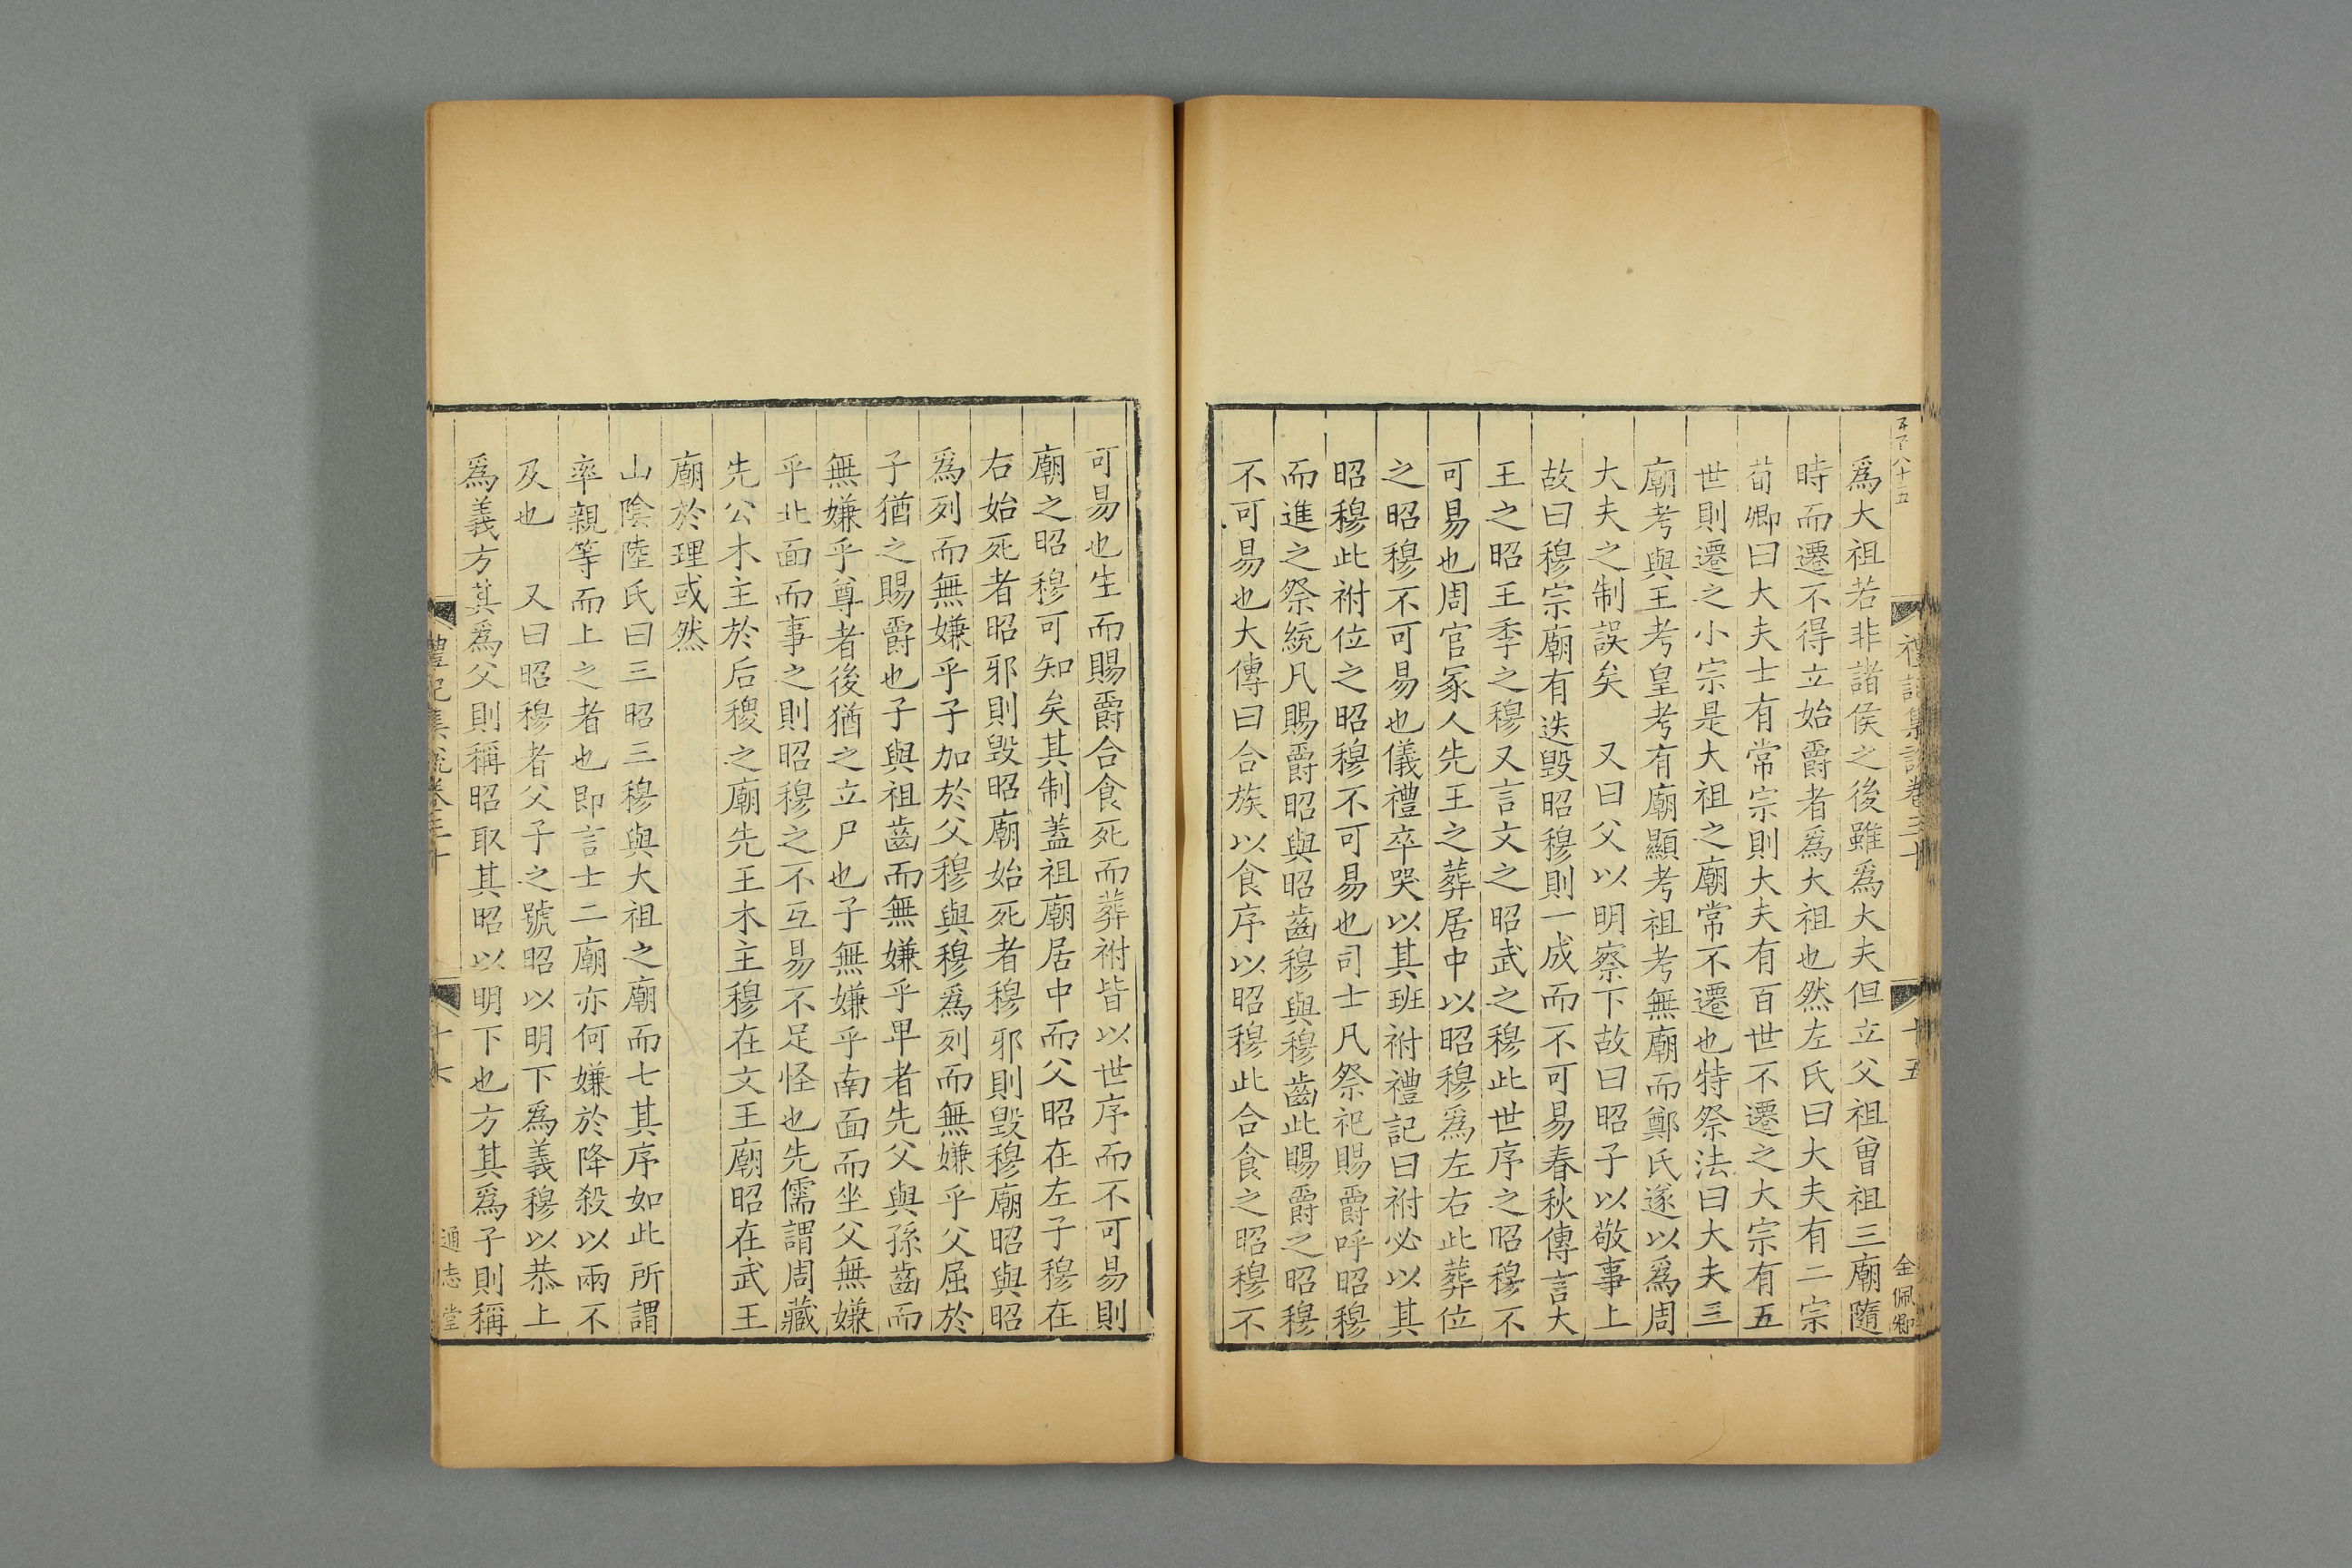 爲大祖若非諸侯之後雖爲大夫但立父祖曾祖三廟隨
時而遷不得立始爵者爲大祖也然左氏曰大夫有二宗
荀卿曰大夫士有常宗則大夫有百世不遷之大宗有五
世則遷之小宗是大祖之廟常不遷也特祭法曰大夫三
廟考與王考皇考有廟顯考祖考無廟而鄭氏遂以爲周
大夫之制誤矣 又曰父以明察下故曰昭子以敬事上
故曰穆宗廟有迭毀昭穆則一成而不可易春秋傳言大
王之昭王季之穆又言文之昭武之穆此世序之昭穆不
可易也周官冢人先王之葬居中以昭穆爲左右此葬位
之昭穆不可易也儀禮卒哭以其班祔禮記曰祔必以其
昭穆此祔位之昭穆不可易也司士凡祭祀賜爵呼昭穆
而進之祭統凡賜爵昭與昭齒穆與穆齒此賜爵之昭穆
不可易也大傳曰合族以食序以昭穆此合食之昭穆不
禮記集說卷三十 十五
金佩卿
可易也生而賜爵合食死而葬祔皆以世序而不可易則
廟之昭穆可知矣其制蓋祖廟居中而父昭在左子穆在
右始死者昭邪則毀昭廟始死者穆邪則毀穆廟昭與昭
爲列而無嫌乎子加於父穆與穆爲列而無嫌乎父屈於
子猶之賜爵也子與祖齒而無嫌乎卑者先父與孫齒而
無嫌乎尊者後猶之立尸也子無嫌乎南面而坐父無嫌
乎北面而事之則昭穆之不互易不足怪也先儒謂周藏
先公木主於后稷之廟先王木主穆在文王廟昭在武王
廟於理或然
山陰陸氏曰三昭三穆與大祖之廟而七其序如此所謂
率親等而上之者也即言士二廟亦何嫌於降殺以兩不
及也 又曰昭穆者父子之號昭以明下爲義穆以恭上
爲義方其爲父則稱昭取其昭以明下也方其爲子則稱
禮記集說卷三十
通志堂